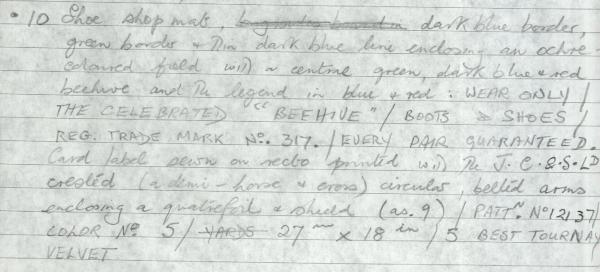 • 10 Shoe shop mat, dark blue border,
green border & thin dark blue line enclosing an ochre-
coloured field with a central green, dark blue & red
beehive and the legend in blue & red: WEAR ONLY /
THE CELEBRATED "BEEHIVE" / BOOTS & SHOES /
REG. TRADE MARK No. 317. / EVERY PAIR GUARANTEED.
Card label sewn on recto printed with the J. C. & S. LD
crested (a demi-horse & cross) circular, belted arms
enclosing a quatrefoil & shield (as. 9) / PATTN. No 12137/
COLOR No 5/ YARDS 27 in x 18 in / 5 BEST TOURNAY
VELVET